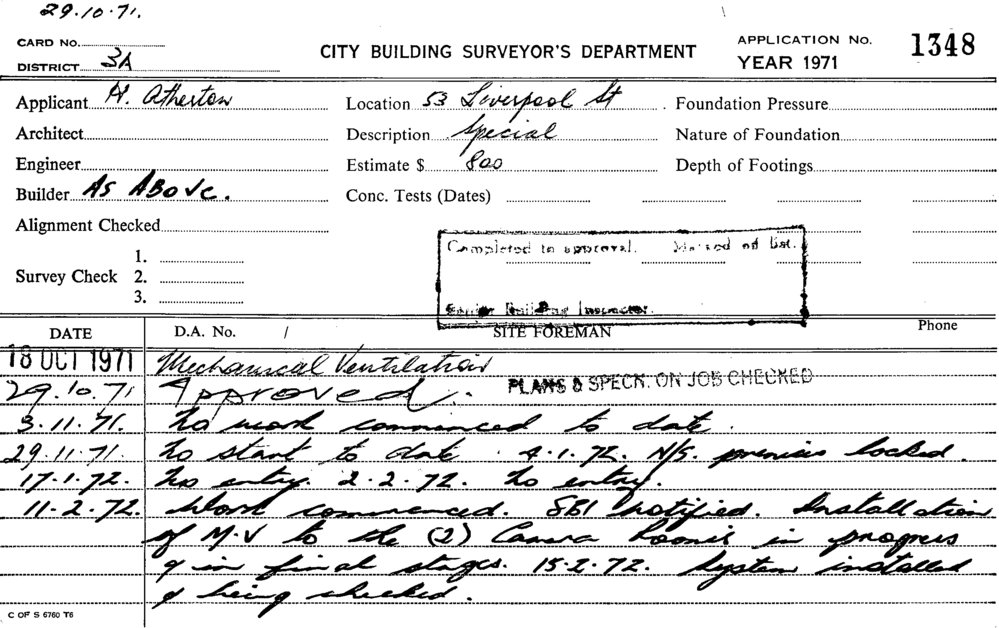 29.10.71.
CARD No.
DISTRICT 3A
CITY BUILDING SURVEYOR'S DEPARTMENT
APPLICATION No. 1348
YEAR 1971
Applicant H. Atherton
Location 53 Liverpool St
Foundation Pressure
Architect
Description Special
Nature of Foundation
Engineer
Estimate $ 800
Depth of Footings
Builder As Above.
Conc. Tests (Dates)
Alignment Checked
Completed to approval. Marked off list.
Survey Check 1.
2.
3.
Senior Building Inspector.
DATE D.A. No. / SITE FOREMAN Phone
18 OCT 1971 Mechanical Ventilation
29.10.71 Approved. PLANS & SPECN. ON JOB CHECKED
3.11.71. No work commenced to date.
29.11.71. No start to date. 4.1.72. N/S. premises locked.
17.1.72. No entry. 2.2.72. No entry.
11.2.72. Work commenced. SBI notified. Installation
of M.V to the (2) Camera Rooms in progress
& in final stages. 15.2.72. System installed
& being checked.
C OF S 6760 T6